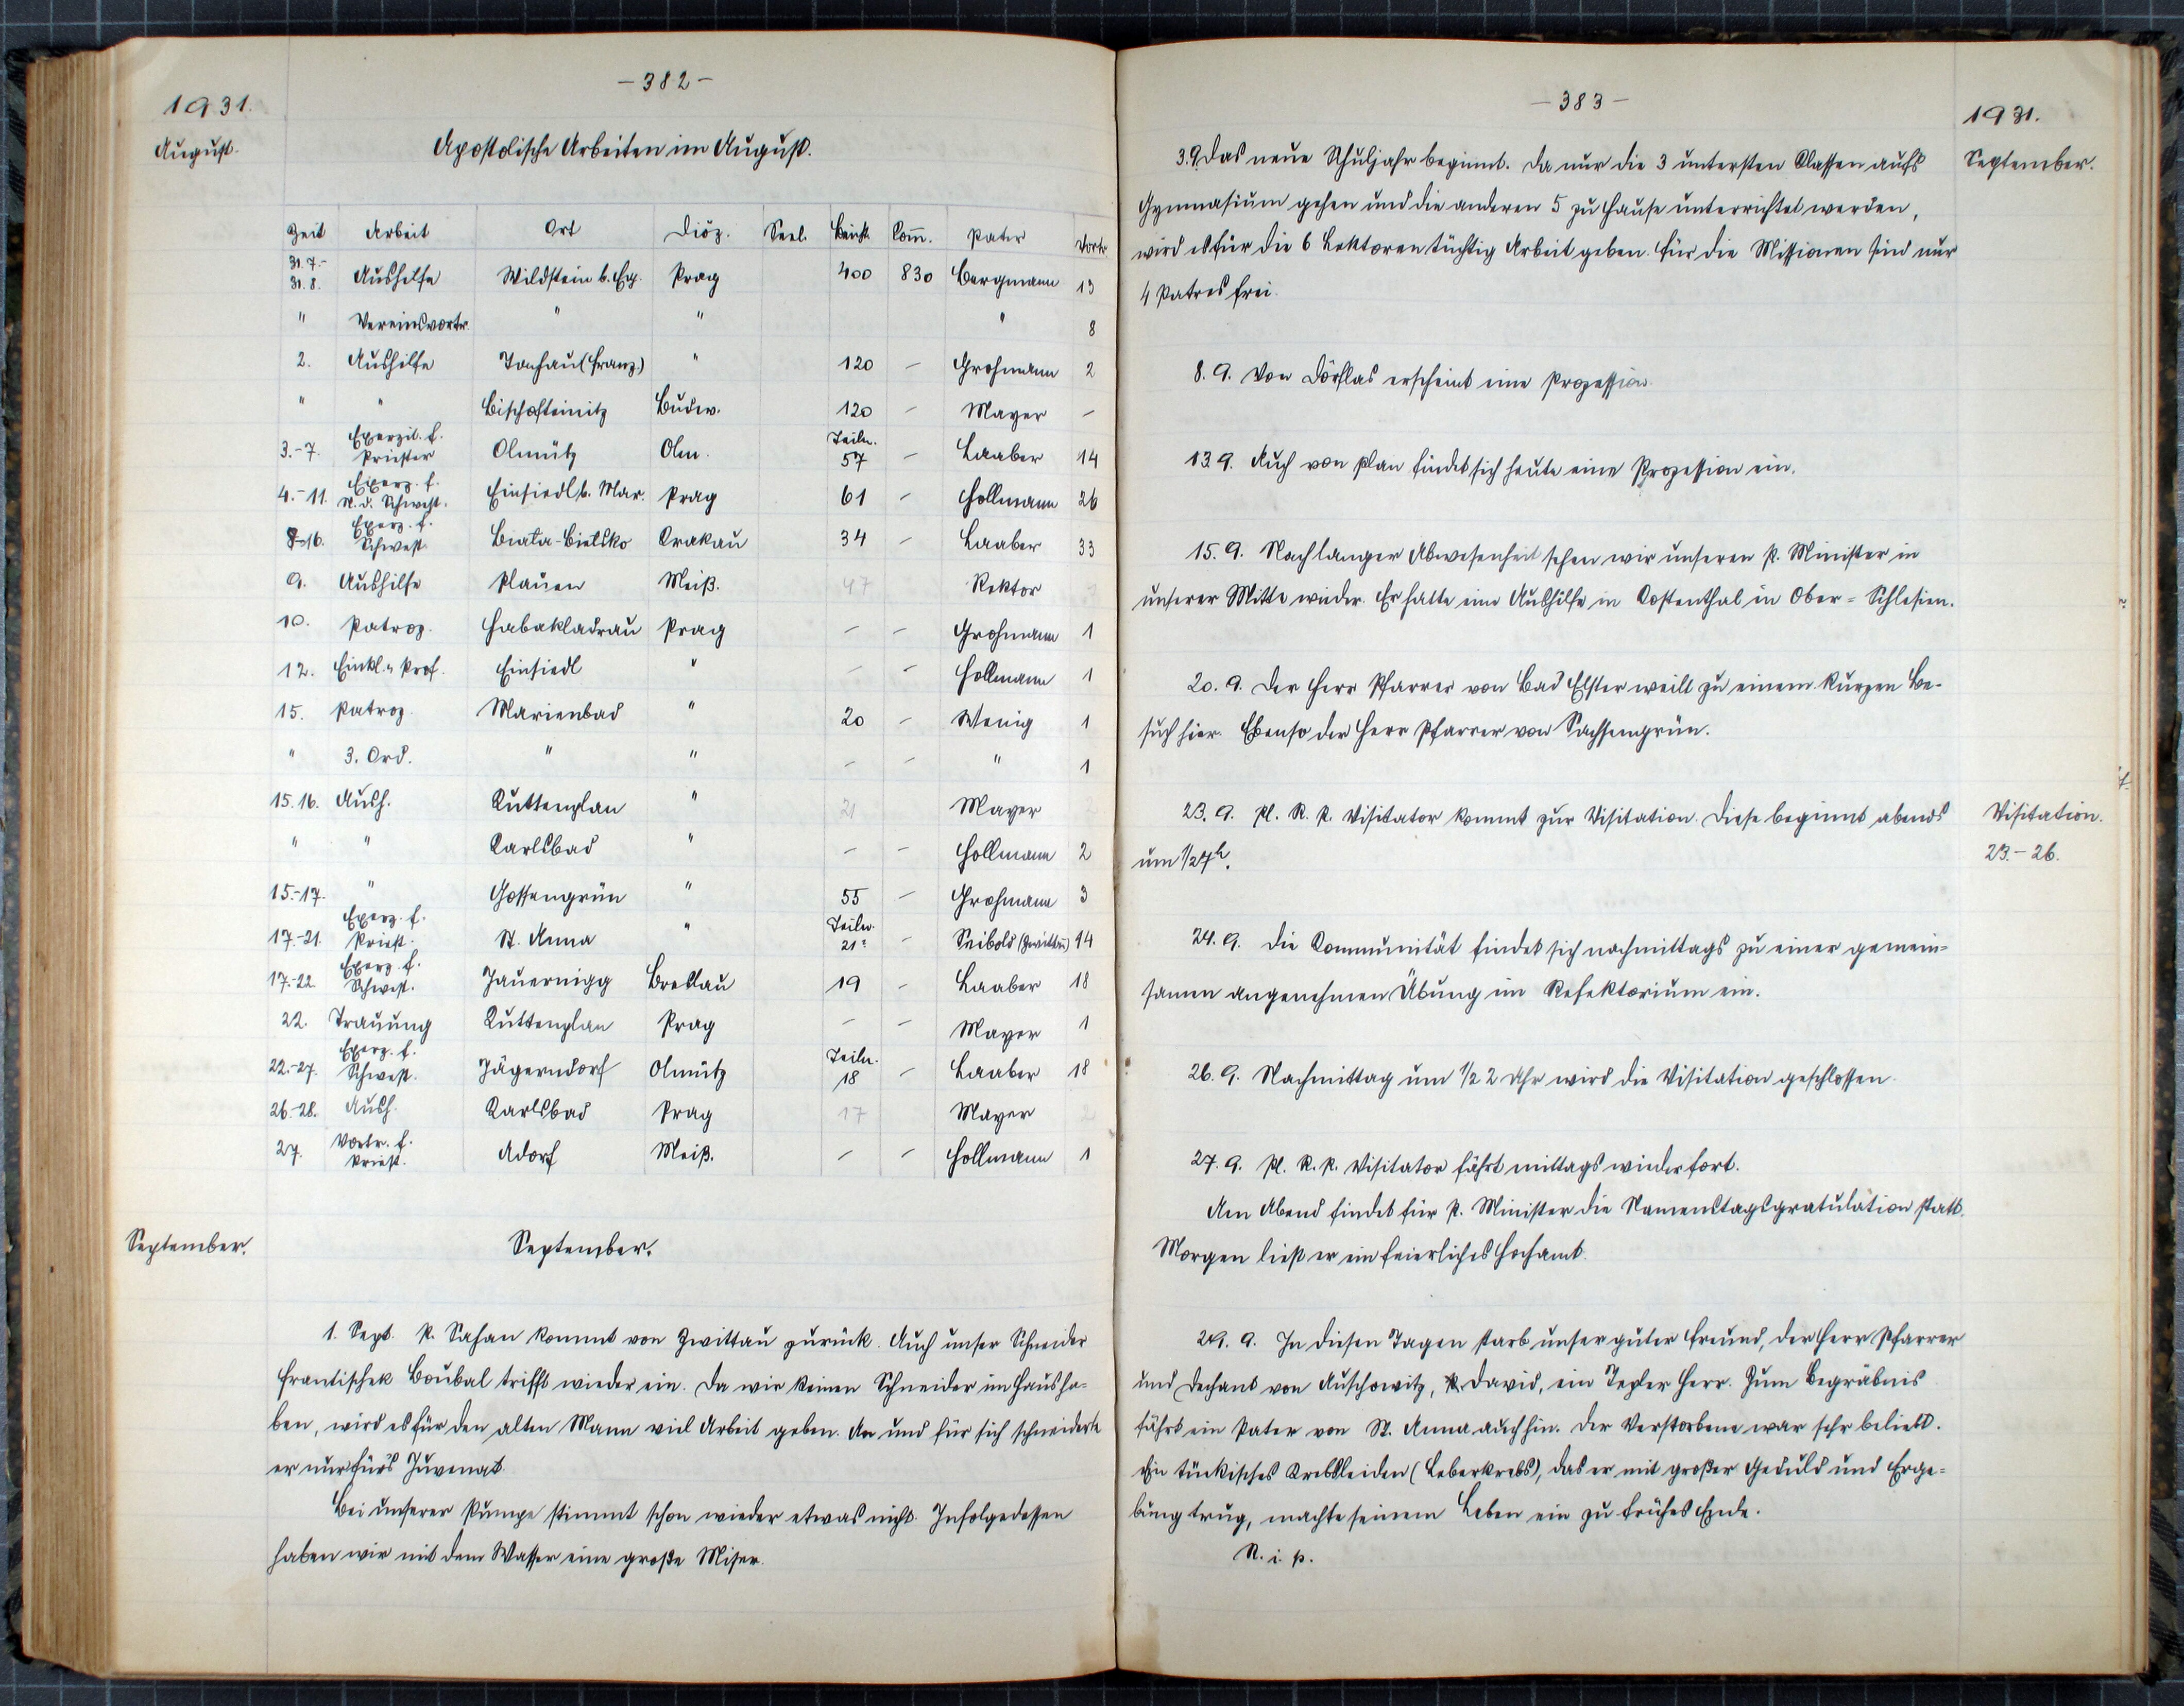 - 382 -
1931.
August.
Apostolische Arbeiten im August.
Zeit Arbeit Ort Diöz. Seel. Beicht. Com̅. Pater Vortr.
31.7.-31.8. Aushilfe Wildstein b. Eg. Prag 400 830 Bergmann 13
" Vereinsvortr. " " " 8
2. Aushilfe Tonhau (Franz.) " 120 - Grohmann 2
" " Bischofteinitz Budw. 120 - Mayer -
3.-7. Exerzit. f. Priester Olmütz Olm. Teiln. 57 - Laaber 14
4.-11. Exerz. f. Schwest. Einsiedl b. Mar. Prag 61 - Hollmann 26
8-16. Exerz. f. Schwest. Biala-Bielsko Krakau 34 - Laaber 33
9. Aushilfe Plauen Meiß. 47 Rektor
10. Patroz. Habakladrau Prag - - Grohmann 1
12. Einkl. u Prof. Einsiedl " - - Hollmann 1
15. Patroz. Marienbad " 20 - Wenig 1
" 3. Ord. " " - - " 1
15.16. Aush. Kuttenplan " 21 Mayer
" " Karlsbad " - - Hollmann 2
15.-17. " Gossengrün " 55 - Grohmann 3
17.-21. Exerz. f. Priest. St. Anna " Teiln. 21 - Seibold (Zwittau) 14
17.-22. Exerz. f. Schwest. Jauernigg Breslau 19 - Laaber 18
22. Trauung Kuttenplan Prag - - Mayer 1
22.-27. Exerz. f. Schwest. Jägerndorf Olmütz Teiln. 18 - Laaber 18
26.-28. Aush. Karlsbad Prag 17 Mayer 2
27. Vortr. f. Priest. Adorf Meiß. - - Hollmann 1
September.
September.
1. Sept. P. Sahan kommt von Zwittau zurück. Auch unser Schneider
Frantischek Boubal trifft wieder ein. Da wir keinen Schneider im Hause ha-
ben, wird es für den alten Mann viel Arbeit geben. An und für sich schneiderte
er nur fürs Juvenat.
Bei unserer Pumpe stimmt schon wieder etwas nicht. Infolgedessen
haben wir mit dem Wasser eine große Miser.
- 383 -
1931.
September.
3.9. Das neue Schuljahr beginnt. Da nur die 3 untersten Klassen aufs
Gymnasium gehen und die anderen 5 zu Hause unterrichtet werden,
wird es für die 6 Lektoren tüchtig Arbeit geben. Für die Missionen sind nur
4 Patres frei.
8.9. Von Dörflas erscheint eine Prozession.
13.9. Auch von Plan findet sich heute eine Prozession ein.
15.9. Nach langer Abwesenheit sehen wir unseren P. Minister in
unserer Mitte wieder. Er hatte eine Aushilfe in Kostenthal in Ober-Schlesien.
20.9. Der Herr Pfarrer von Bad Elster weilt zu einem kurzen Be-
such hier. Ebenso der Herr Pfarrer von Sachsengrün.
23.9. Pl. R. P. Visitator kommt zur Visitation. Diese beginnt abends
um 1/2 7h.
Visitation.
23.-26.
24.9. Die Kommunität findet sich nachmittags zu einer gemein-
samen angenehmen Übung im Refektorium ein.
26.9. Nachmittag um 1/2 2 Uhr wird die Visitation geschlossen.
27.9. Pl. R. P. Visitator fährt mittags wieder fort.
Am Abend findet für P. Minister die Namenstagsgratulation statt.
Morgen liest er ein feierliches Hochamt.
29.9. In diesen Tagen starb unser guter Freund, der Herr Pfarrer
und Dechant von Auschowitz, P. David, ein Tepler Herr. Zum Begräbnis
fährt ein Pater von St. Anna auch hin. Der Verstorbene war sehr beliebt.
Ein tückisches Krebsleiden (Leberkrebs), das er mit großer Geduld und Erge-
bung trug, machte seinem Leben ein zu frühes Ende.
R. i. p.